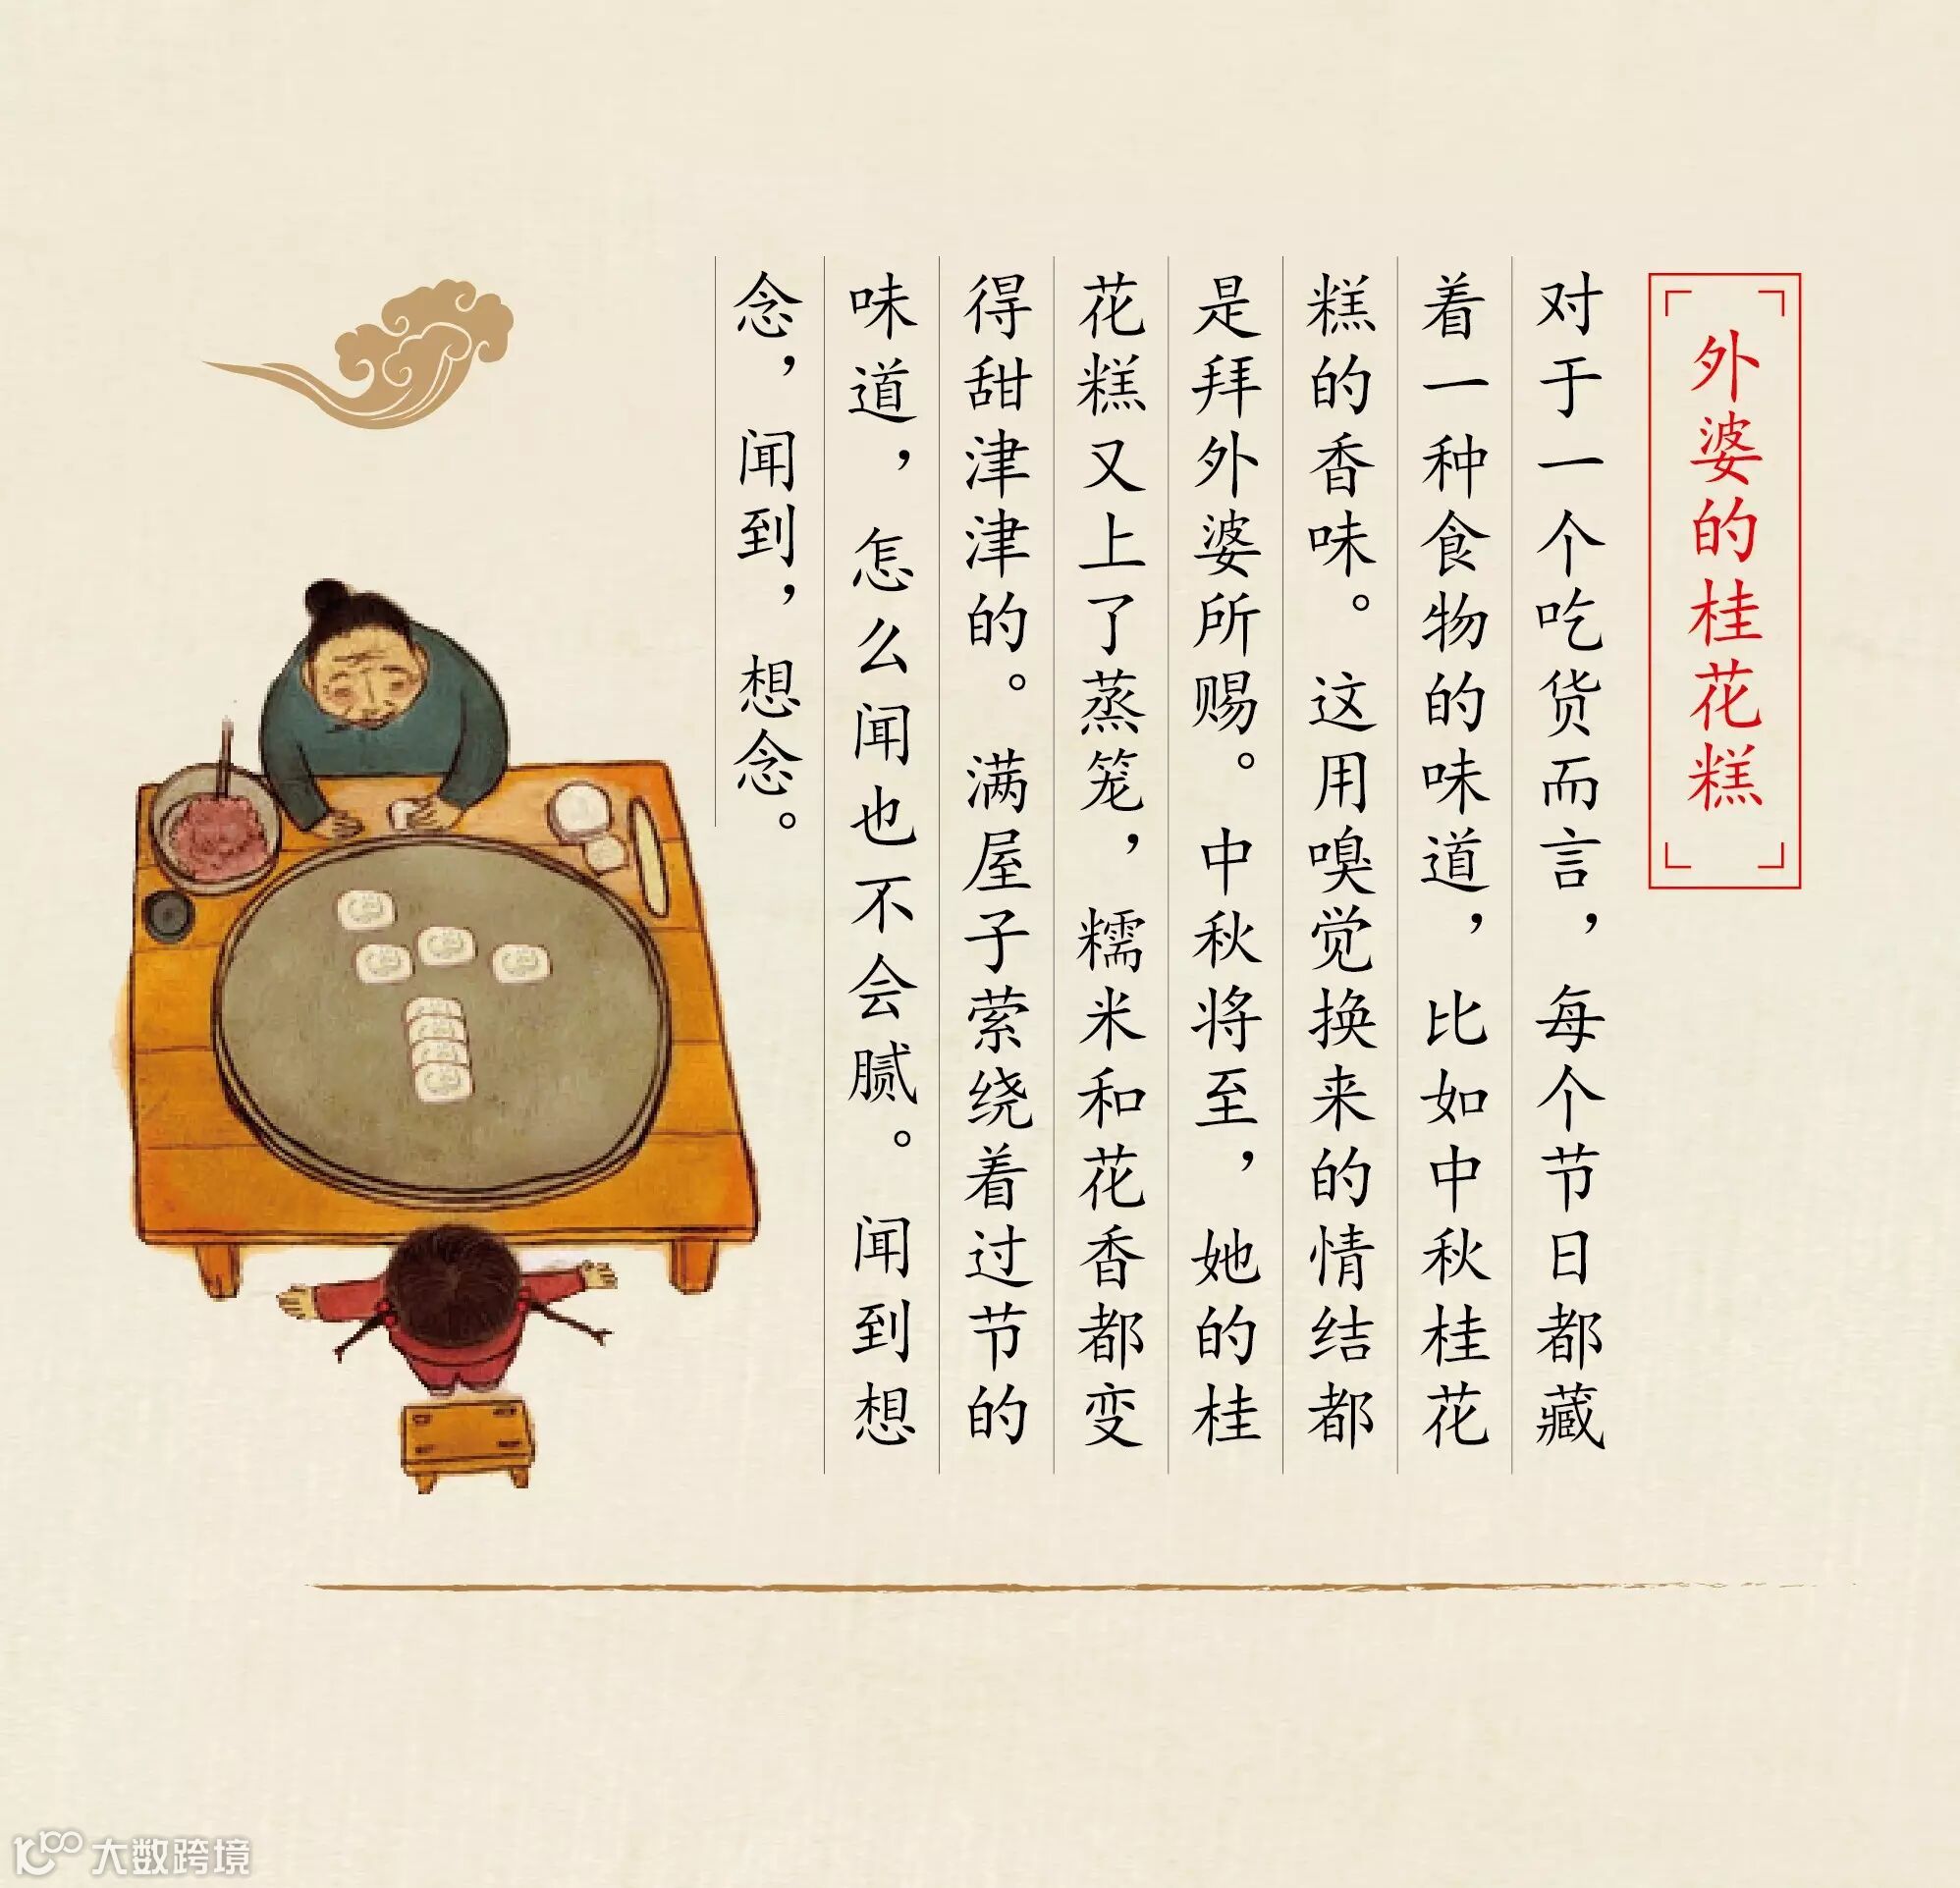 外婆的桂花糕
对于一个吃货而言，每个节日都藏
着一种食物的味道，比如中秋桂花
糕的香味。这用嗅觉换来的情结都
是拜外婆所赐。中秋将至，她的桂
花糕又上了蒸笼，糯米和花香都变
得甜津津的。满屋子萦绕着过节的
味道，怎么闻也不会腻。闻到想
念，闻到，想念。
100 大数跨境